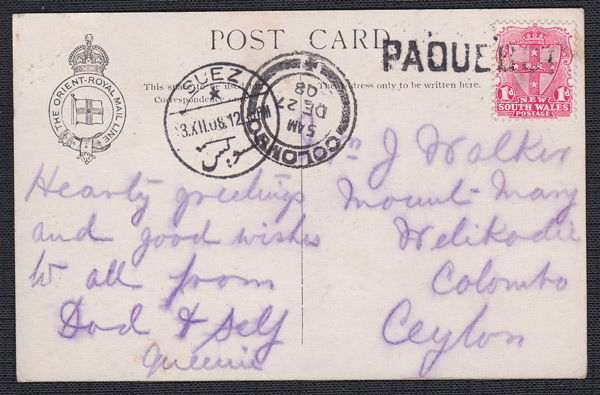 POST CARD
PAQUEBOT
THE ORIENT-ROYAL MAIL LINE
This s
Correspondence
dress only to be written here.
SUEZ
3.XII.08.12
PM
السويس
COLOMBO
5 AM
DE 27
08
1d NEW 1d
SOUTH WALES
POSTAGE
Hearty greetings
and good wishes
to all from
Dad & Self
Queenie
J Walker
Mount-Mary
Welikada
Colombo
Ceylon